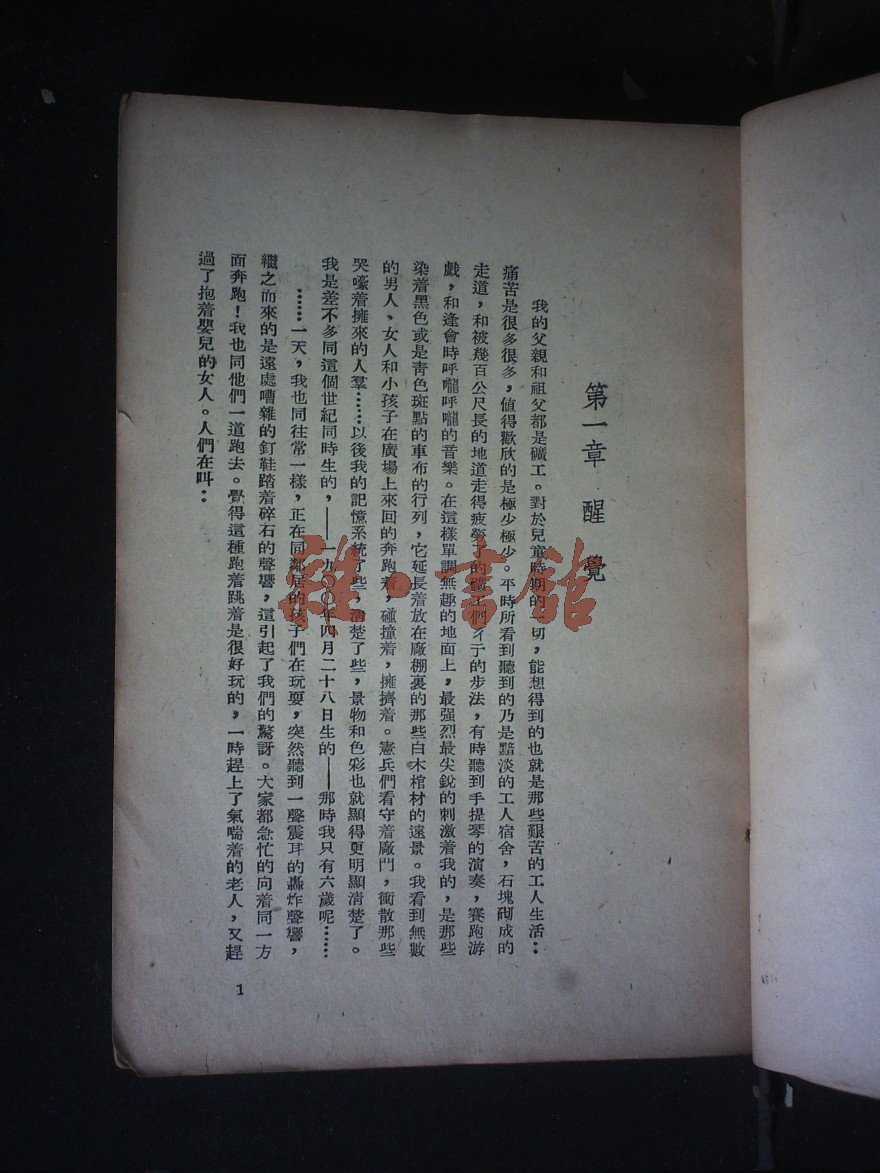 第一章 醒覺
我的父親和祖父都是礦工。對於兒童時期的一切，能想得到的也就是那些艱苦的工人生活：
痛苦是很多很多，値得歡欣的是極少極少。平時所看到聽到的乃是黯淡的工人宿舍，石塊砌成的
走道，和被幾百公尺長的地道走得疲勞了的礦工們彳亍的步法，有時聽到手提琴的演奏，賽跑游
戲，和逢會時呼嚨呼嚨的音樂。在這樣單調無趣的地面上，最强烈最尖銳的刺激着我的，是那些
染着黑色或是靑色斑點的車布的行列，它延長着放在廠棚裏的那些白木棺材的遠景。我看到無數
的男人、女人和小孩子在廣場上來回的奔跑着，碰撞着，擁擠着。憲兵們看守着廠門，衝散那些
哭嚎着擁來的人羣……以後我的記憶系統了些，淸楚了些，景物和色彩也就顯得更明顯淸楚了。
我是差不多同這個世紀同時生的，——一九〇〇年四月二十八日生的——那時我只有六歲呢……
……一天，我也同往常一樣，正在同鄰居的孩子們在玩耍，突然聽到一聲震耳的轟炸聲響，
繼之而來的是遠處嘈雜的釘鞋踏着碎石的聲響，這引起了我們的驚訝。大家都急忙的向着同一方
面奔跑！我也同他們一道跑去。覺得這種跑着跳着是很好玩的，一時趕上了氣喘着的老人，又趕
過了抱着嬰兒的女人。人們在叫：
1
雜·書館